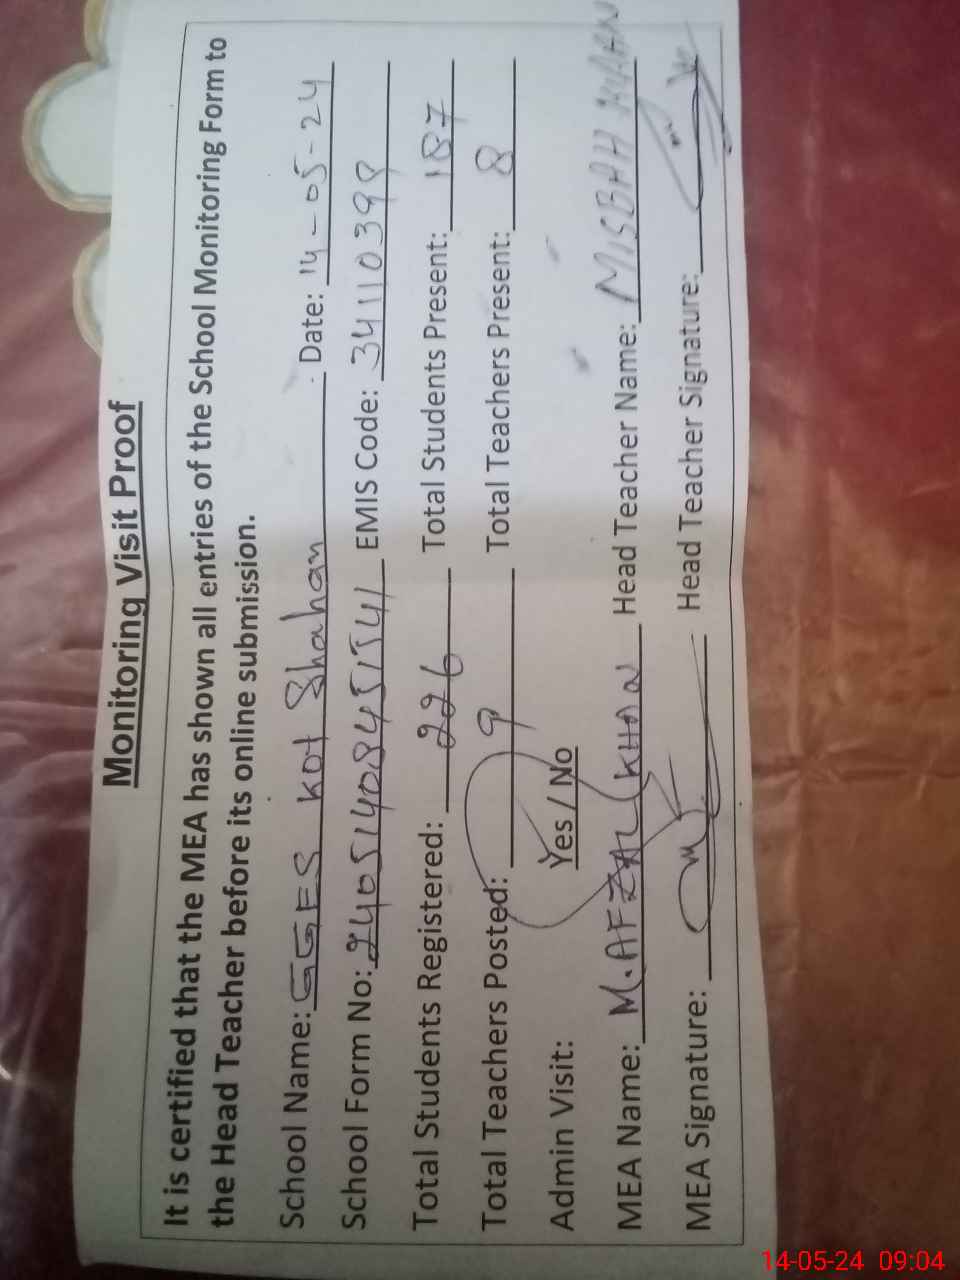 Monitoring Visit Proof
It is certified that the MEA has shown all entries of the School Monitoring Form to
the Head Teacher before its online submission.
School Name: GGES Kot Shahan Date: 14-05-24
School Form No: 24051408451541 EMIS Code: 34110398
Total Students Registered: 226 Total Students Present: 187
Total Teachers Posted: 9 Total Teachers Present: 8
Admin Visit: Yes / No
MEA Name: M. AFZAL KHAN Head Teacher Name: MISBAH
MEA Signature: Head Teacher Signature:
14-05-24 09:04